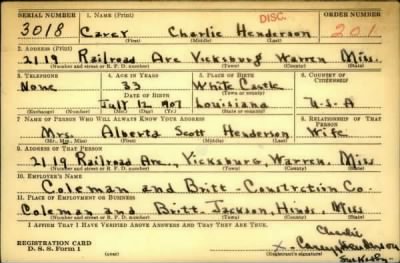 SERIAL NUMBER 1. NAME (Print) DISC. ORDER NUMBER
3018 Carey Charlie Henderson 201
(First) (Middle) (Last)
2. ADDRESS (Print)
2119 Railroad Ave Vicksburg Warren Miss.
(Number and street or R. F. D. number) (Town) (County) (State)
3. TELEPHONE 4. AGE IN YEARS 5. PLACE OF BIRTH 6. COUNTRY OF CITIZENSHIP
None 33 White Castle
DATE OF BIRTH (Town or county)
July 12 1907 Louisiana U-S-A
(Exchange) (Number) (Mo.) (Day) (Yr.) (State or country)
7. NAME OF PERSON WHO WILL ALWAYS KNOW YOUR ADDRESS 8. RELATIONSHIP OF THAT PERSON
Mrs. Alberta Scott Henderson Wife
(Mr., Mrs., Miss) (First) (Middle) (Last)
9. ADDRESS OF THAT PERSON
2119 Railroad Ave, Vicksburg, Warren, Miss
(Number and street or R. F. D. number) (Town) (County) (State)
10. EMPLOYER'S NAME
Coleman and Britt - Constrction Co.
11. PLACE OF EMPLOYMENT OR BUSINESS
Coleman and Britt. Jackson, Hinds, Miss
(Number and street or R. F. D. number) (Town) (County) (State)
I AFFIRM THAT I HAVE VERIFIED ABOVE ANSWERS AND THAT THEY ARE TRUE.
Charlie
REGISTRATION CARD x Carey Henderson
D. S. S. Form 1